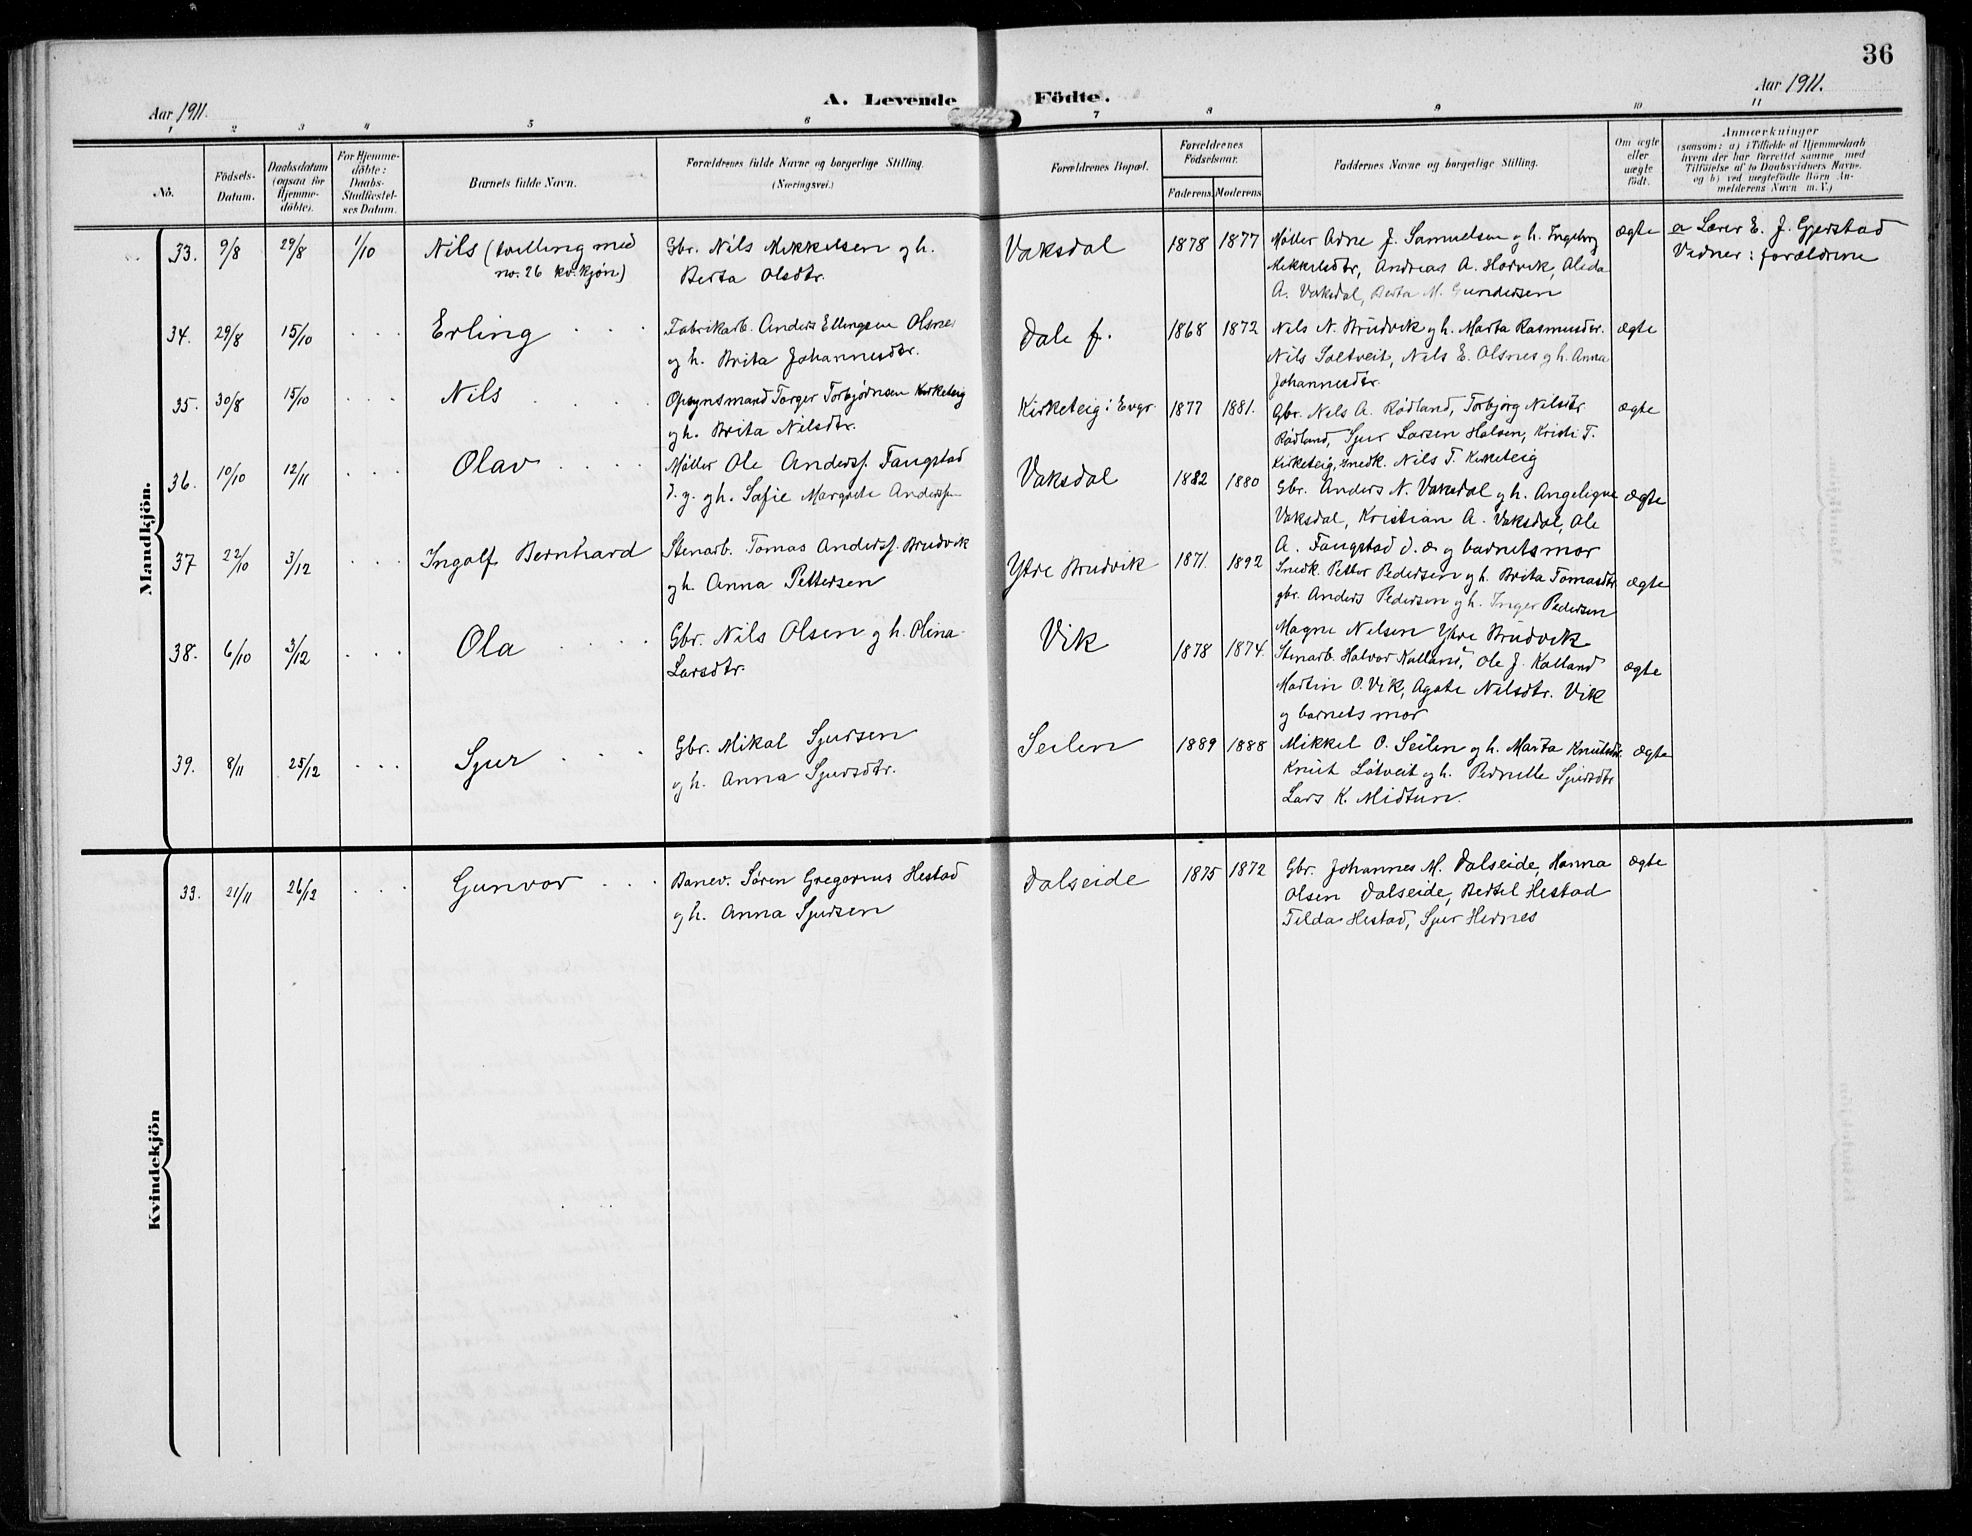 36
Aar 1911.
A. Levende Födte.
Aar 1911.
1 2 3 4 5 6 7 8 9 10 11
No.
Födsels-Datum.
Daabsdatum (ogsaa for Hjemme-döbte).
For Hjemme-döbte: Daabs-Stadfæstel-ses Datum.
Barnets fulde Navn.
Forældrenes fulde Navne og borgerlige Stilling. (Næringsvei.)
Forældrenes Bopæl.
Forældrenes Födselsaar.
Faderens. Moderens.
Faddernes Navne og borgerlige Stilling.
Om ægte eller uægte födt.
Anmærkninger
(saasom: a) i Tilfælde af Hjemmedaab
hvem der har forrettet samme med
Tilföielse af to Daabsvidners Navne.
og b) ved uægtefödte Börn An-
melderens Navn m. V.)
Mandkjön.
33. 9/8 29/8 1/10 Nils (tvelling med Gbr. Nils Mikkelsen og h. Vaksdal 1878 1877 Møller Arne J. Samuelsen og h. Ingeborg ægte a Lærer E. J. Gjerstad
no. 26 kv.kjøn) Berta Olsdtr. Mikkelsdtr, Andreas A. Horvik, Alida Vidner: forældrene
A. Vaksdal, Berta M. Gundersen
34. 29/8 15/10 Erling Fabrikarb. Anders Ellingsen Olsnes Dale f. 1868 1872 Nils N. Brudvik og h. Marta Rasmusdtr. ægte
og h. Brita Johannesdtr. Nils Soltveit, Nils E. Olsnes og h. Anna
Johannesdtr.
35. 30/8 15/10 Nils Opsynsmand Torger Torbjørnsen Kirketeig Kirketeig i Evgr. 1877 1881. Gbr. Nils A. Rødland, Torbjørg Nilsdtr. ægte
og h. Brita Nilsdtr. Rødland, Sjur Larsen Halsen, Kristi T.
Kirketeig, snedk. Nils T. Kirketeig
36. 10/10 12/11 Olav Møller Ole Anderss. Fangstad Vaksdal 1882 1880 Gbr. Anders N. Vaksdal og h. Angelique ægte
d. y. og h. Sofie Margrete Anderssen Vaksdal, Kristian A. Vaksdal, Ole
A. Fangstad d. æ. og barnets mor
37 22/10 3/12 Ingolf Bernhard Stenarb. Tomas Anderss. Brudvik Ytre Brudvik 1871. 1892 Snedk. Petter Pedersen og h. Brita Tomasdtr. ægte
og h. Anna Pettersen gbr. Anders Pedersen og h. Inger Pedersen
Magne Nelsen Ytre Brudvik
38. 6/10 3/12 Ola Gbr. Nils Olsen og h. Olina Vik 1878 1874. Stenarb. Halvor Kalland, Ole J. Kalland ægte
Larsdtr. Martin O. Vik, Agate Nilsdtr. Vik
og barnets mor
39. 8/11 25/12 Sjur Gbr. Mikal Sjursen Seilen 1889 1888 Mikkel O. Seilen og h. Marta Knutsdtr. ægte
og h. Anna Sjursdtr. Knut Løtveit og h. Pernille Sjursdtr
Lars K. Midtun.
Kvindekjön
33. 21/11 26/12 Gunvor Banev. Søren Gregorius Hestad Dalseide 1875 1872 Gbr. Johannes M. Dalseide, Hanna ægte
og h. Anna Sjursen Olsen Dalseide, Bertel Hestad
Tilda Hestad, Sjur Hernes